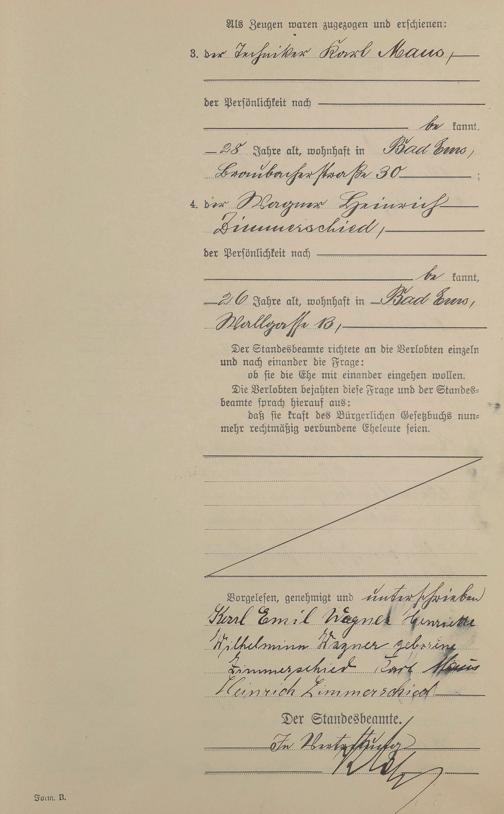 Als Zeugen waren zugezogen und erschienen:
3. der Techniker Karl Maus,
der Persönlichkeit nach
be kannt,
28 Jahre alt, wohnhaft in Bad Ems,
Braubacherstraße 30 ;
4. der Wagner Heinrich
Zimmerschied,
der Persönlichkeit nach
be kannt,
26 Jahre alt, wohnhaft in Bad Ems,
Wallgasse 13,
Der Standesbeamte richtete an die Verlobten einzeln
und nach einander die Frage:
ob sie die Ehe mit einander eingehen wollen.
Die Verlobten bejahten diese Frage und der Standes=
beamte sprach hierauf aus:
daß sie kraft des Bürgerlichen Gesetzbuchs nun=
mehr rechtmäßig verbundene Eheleute seien.
Vorgelesen, genehmigt und unterschrieben
Karl Emil Wagner Henriette
Wilhelmine Wagner geborene
Zimmerschied Karl Maus
Heinrich Zimmerschied
Der Standesbeamte.
In Vertretung
Form. B.